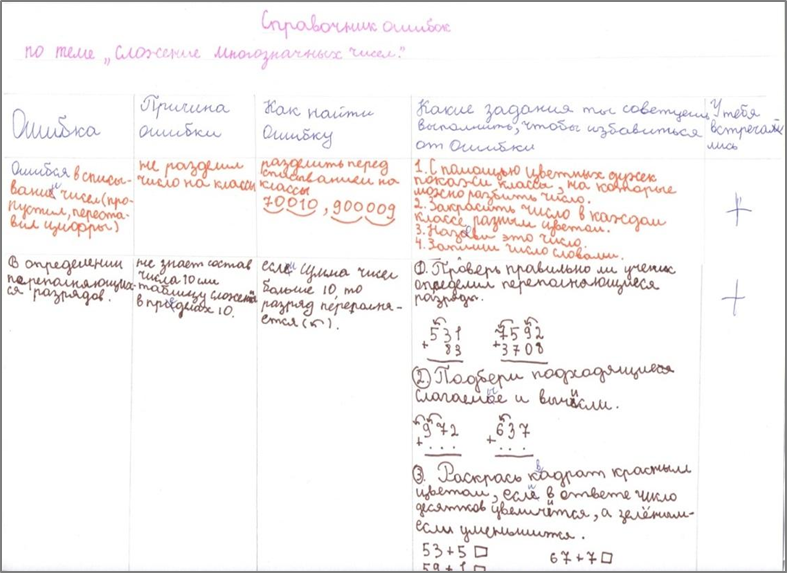 Справочник ошибок
по теме „Сложение многозначных чисел."
Ошибка
Причина
ошибки
Как найти
ошибку
Какие задания ты советуешь
выполнить, чтобы избавиться
от ошибки
У тебя
встречались
Ошибся в списы-
вании чисел (про-
пустил, переста-
вил цифры)
не разделил
число на классы
разделить перед
списыванием на
классы
70010, 900009
1. С помощью цветных дужек
покажи классы, на которые
можно разбить число.
2. Закрасить число в каждом
классе разным цветом.
3. Назови это число.
4. Запиши число словами.
+
В определении
переполняющих-
ся разрядов.
не знает состав
числа 10 или
таблицу сложения
в пределах 10.
если сумма чисел
больше 10, то
разряд переполня-
ется (↶).
1. Проверь правильно ли ученик
определил переполняющиеся
разряды.
531 7592
+ 83 +3708
2. Подбери подходящиеся
слагаемые и вычисли.
972 637
+... +...
3. Раскрась квадрат красным
цветом, если в ответе число
десятков увеличётся, а зелёным-
если уменьшится.
53+5 □ 67+7 □
59+1 □
+